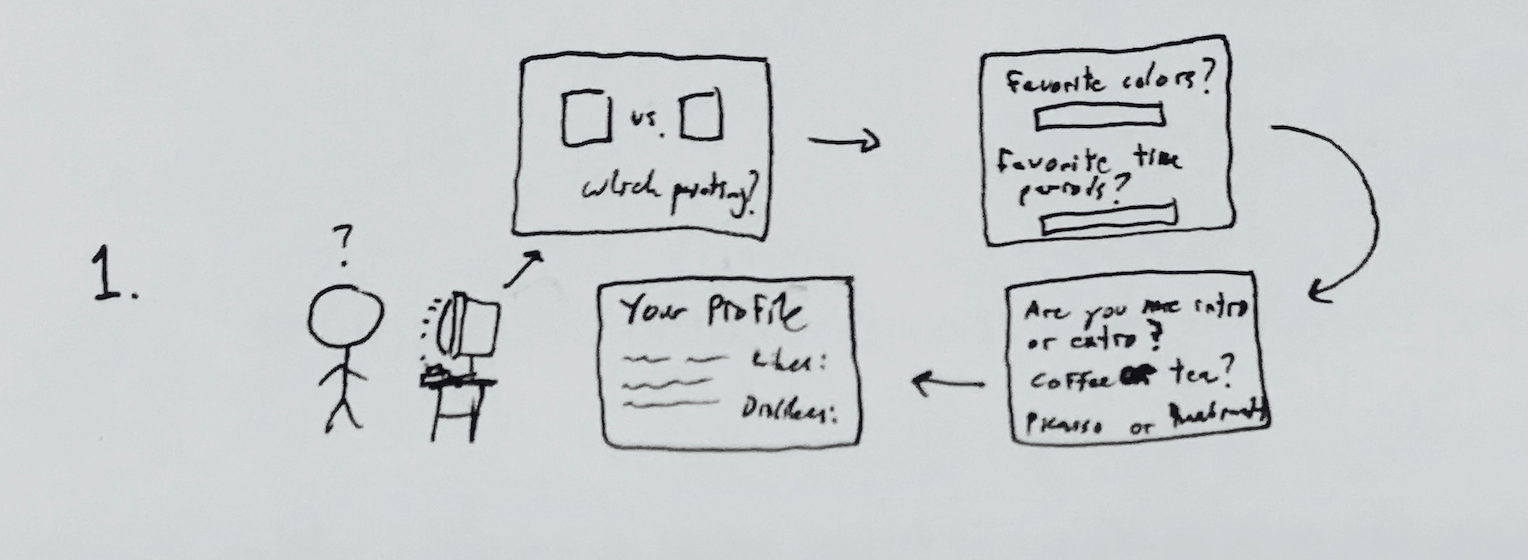 1.
?
vs.
which painting?
Favorite colors?
Favorite time
periods?
Are you intro
or extro?
Coffee or tea?
Picasso or
Your Profile
Likes:
Dislikes: